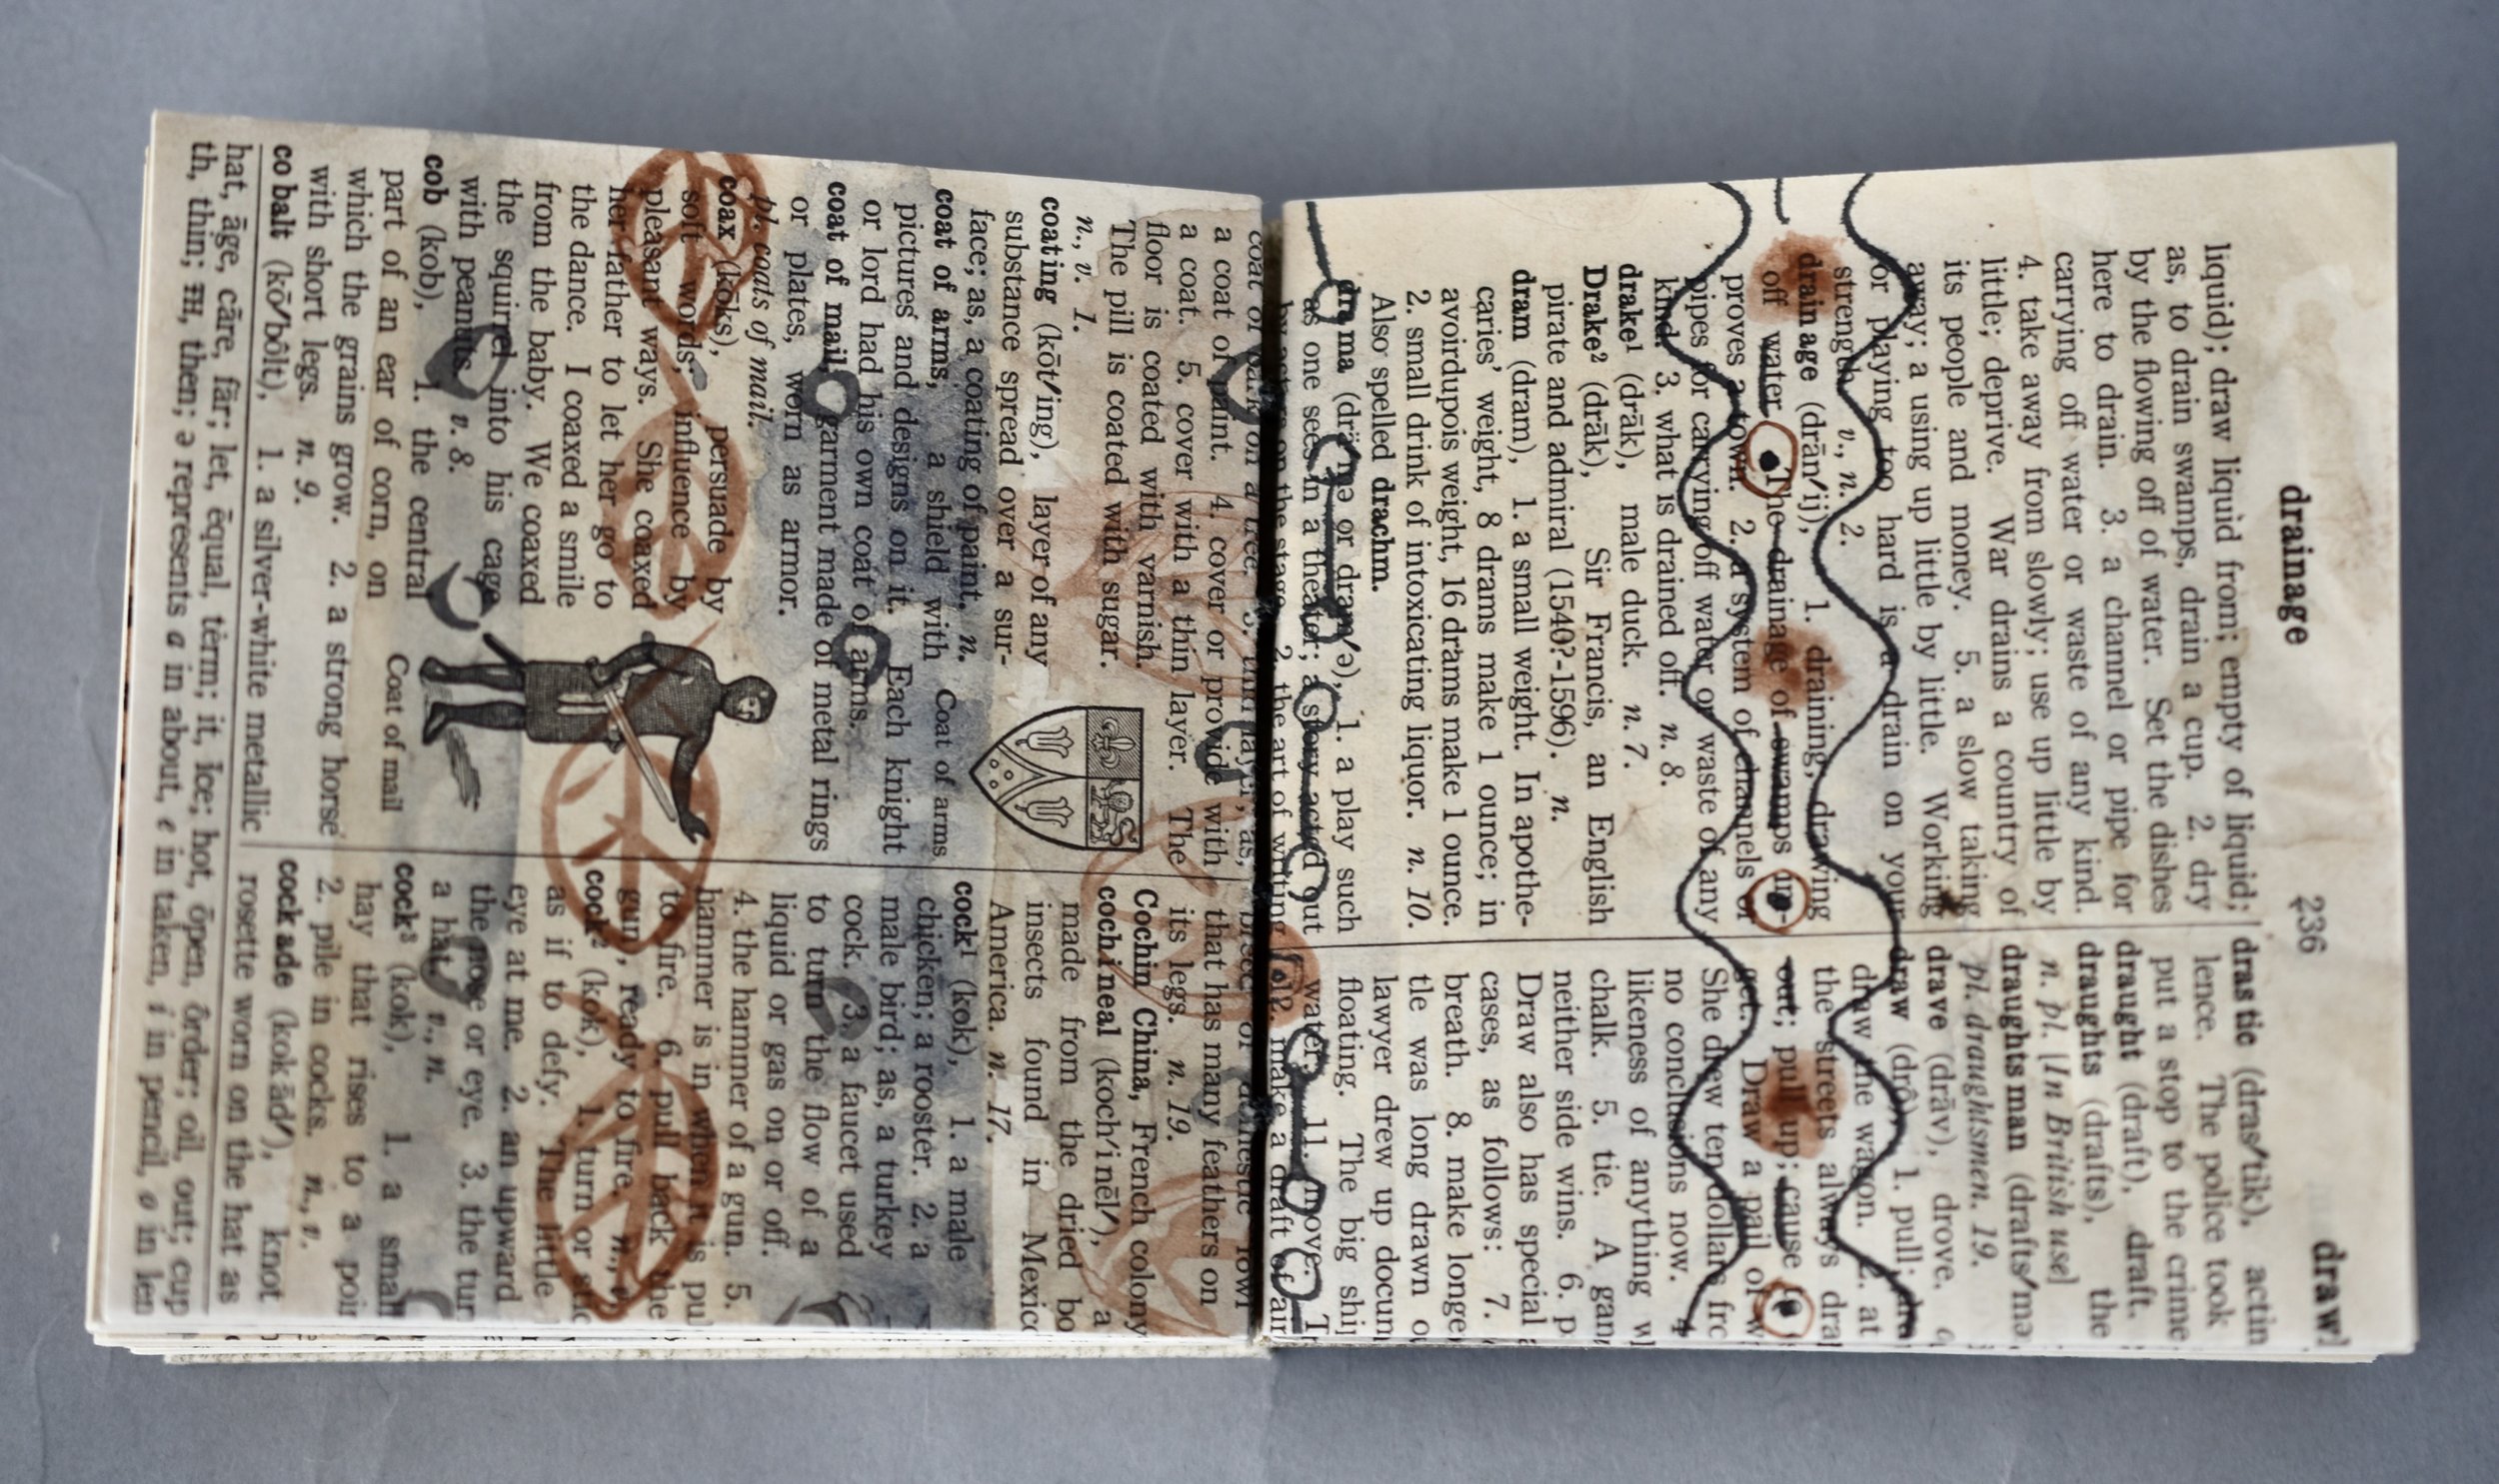 drainage 236 draw
liquid); draw liquid from; empty of liquid;
as, to drain swamps, drain a cup. 2. dry
by the flowing off of water. Set the dishes
here to drain. 3. a channel or pipe for
carrying off water or waste of any kind.
4. take away from slowly; use up little by
little; deprive. War drains a country of
its people and money. 5. a slow taking
away; a using up little by little. Working
or playing too hard is a drain on your
strength. v., n. 2.
drain age (drān′ij), 1. draining, drawing
off water. The drainage of swamps im-
proves a town. 2. a system of channels or
pipes for carrying off water or waste of any
kind. 3. what is drained off. n. 8.
drake¹ (drāk), male duck. n. 7.
Drake² (drāk), Sir Francis, an English
pirate and admiral (1540?-1596). n.
dram (dram), 1. a small weight. In apothe-
caries' weight, 8 drams make 1 ounce; in
avoirdupois weight, 16 drams make 1 ounce.
2. small drink of intoxicating liquor. n. 10.
Also spelled drachm.
dra ma (drä′mə or dram′ə), 1. a play such
as one sees in a theater; a story acted out
by actors on the stage. 2. the art of writing
dras tic (dras′tik), actin
lence. The police took
put a stop to the crime
draught (draft), draft.
draughts (drafts), the
n. pl. [In British use]
draughts man (drafts′mə
pl. draughtsmen. 19.
drave (drāv), drove.
draw (drô), 1. pull; dra
draw the wagon. 2.
the streets always dra
out; pull up; cause to
get. Draw a pail of w
She drew ten dollars fro
no conclusions now. 4
likeness of anything w
chalk. 5. tie. A gam
neither side wins. 6. p
Draw also has special
cases, as follows: 7.
breath. 8. make longe
tle was long drawn o
lawyer drew up docum
floating. The big shi
water. 11. move. T
make a draft of air
coat of bark on a tree. 3. thin layer; as,
a coat of paint. 4. cover or provide with
a coat. 5. cover with a thin layer. The
floor is coated with varnish.
The pill is coated with sugar.
n., v. 1.
coating (kōt′ing), layer of any
substance spread over a sur-
face; as, a coating of paint. n.
coat of arms, a shield with
pictures and designs on it. Each knight
or lord had his own coat of arms.
coat of mail, garment made of metal rings
or plates, worn as armor.
pl. coats of mail.
coax (kōks), persuade by
soft words; influence by
pleasant ways. She coaxed
her father to let her go to
the dance. I coaxed a smile
from the baby. We coaxed
the squirrel into his cage
with peanuts. v. 8.
cob (kob), 1. the central
part of an ear of corn, on
which the grains grow. 2. a strong horse
with short legs. n. 9.
co balt (kō′bôlt), 1. a silver-white metallic
Coat of arms
Coat of mail
breed of domestic fowl
that has many feathers on
its legs. n. 19.
Cochin China, French colony
coch i neal (koch′i nēl′), a
made from the dried bo
insects found in Mexic
America. n. 17.
cock¹ (kok), 1. a male
chicken; a rooster. 2. a
male bird; as, a turkey
cock. 3. a faucet used
to turn the flow of a
liquid or gas on or off.
4. the hammer of a gun. 5.
hammer is in when it is pul
to fire. 6. pull back the
gun, ready to fire. n., v.
cock² (kok), 1. turn or stic
as if to defy. The little
eye at me. 2. an upward
the nose or eye. 3. the tur
a hat. v., n.
cock³ (kok), 1. a small
hay that rises to a poin
2. pile in cocks. n., v.
cock ade (kok ād′), knot
rosette worn on the hat as
hat, āge, cãre, fär; let, ēqual, tėrm; it, īce; hot, ōpen, ôrder; oil, out; cup
th, thin; ᴛʜ, then; ə represents a in about, e in taken, i in pencil, o in lem